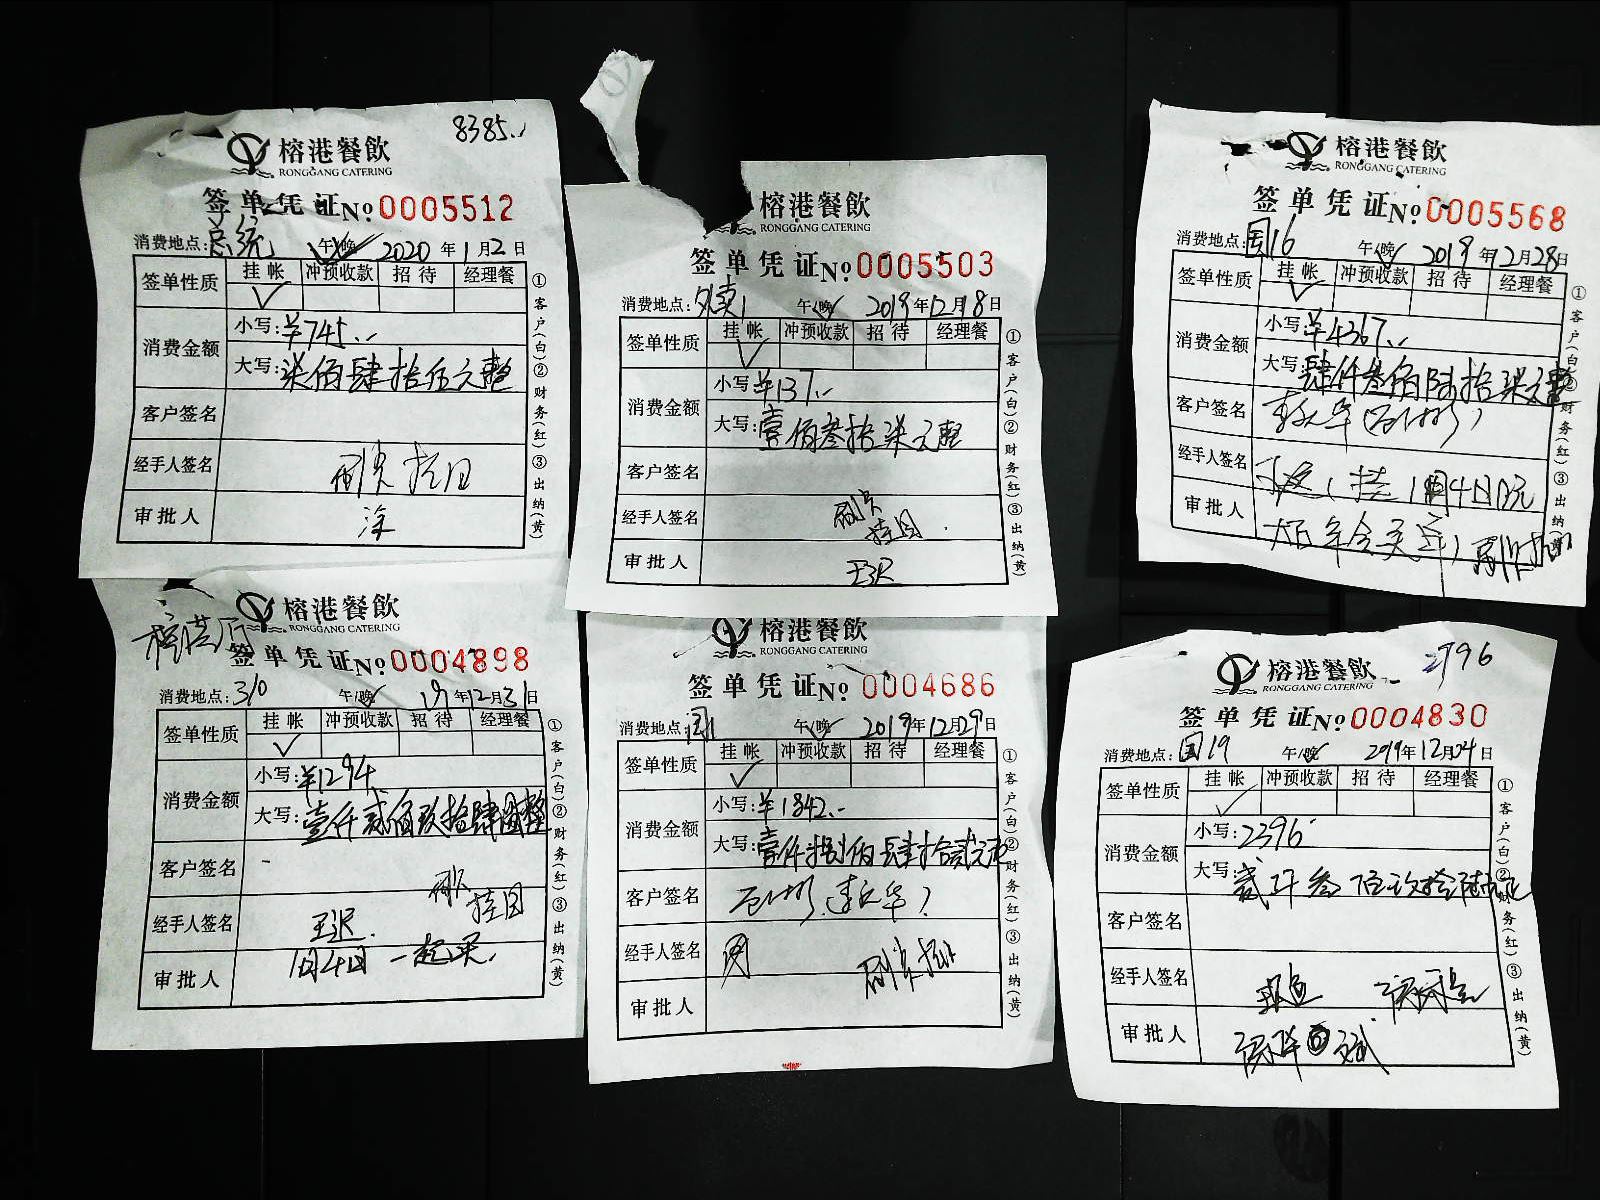 8385
榕港餐飲
RONGGANG CATERING
签单凭证 No 0005512
消费地点: 总统 午/晚 2020年1月2日
签单性质 挂帐 冲预收款 招待 经理餐
消费金额 小写: ¥745
大写: 柒佰肆拾伍元整
客户签名
经手人签名
审批人 涂
①客户(白)②财务(红)③出纳(黄)
榕港餐飲
RONGGANG CATERING
签单凭证 No 0005503
消费地点: 外卖1 午/晚 2019年12月8日
签单性质 挂帐 冲预收款 招待 经理餐
消费金额 小写: ¥137
大写: 壹佰叁拾柒元整
客户签名
经手人签名
审批人 王迟
①客户(白)②财务(红)③出纳(黄)
榕港餐飲
RONGGANG CATERING
签单凭证 No 0005568
消费地点: 国16 午/晚 2019年12月28日
签单性质 挂帐 冲预收款 招待 经理餐
消费金额 小写: ¥4367
大写: 肆仟叁佰陆拾柒元整
客户签名
经手人签名
审批人
①客户(白)②财务(红)③出纳(黄)
榕港餐飲
RONGGANG CATERING
签单凭证 No 0004898
消费地点: 310 午/晚 19年12月31日
签单性质 挂帐 冲预收款 招待 经理餐
消费金额 小写: ¥1294
大写: 壹仟贰佰玖拾肆圆整
客户签名
经手人签名 王迟
审批人 1月4日一起买
①客户(白)②财务(红)③出纳(黄)
榕港餐飲
RONGGANG CATERING
签单凭证 No 0004686
消费地点: 午/晚 2019年12月29日
签单性质 挂帐 冲预收款 招待 经理餐
消费金额 小写: ¥1842.-
大写: 壹仟捌佰肆拾贰元
客户签名
经手人签名
审批人
①客户(白)②财务(红)③出纳(黄)
榕港餐飲
RONGGANG CATERING
签单凭证 No 0004830
消费地点: 国19 午/晚 2019年12月04日
签单性质 挂帐 冲预收款 招待 经理餐
消费金额 小写: 2396
大写: 贰仟叁佰玖拾陆元
客户签名
经手人签名
审批人
①客户(白)②财务(红)③出纳(黄)